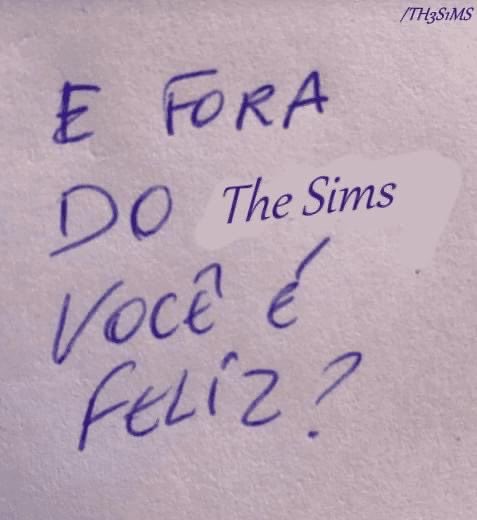 /TH3S1MS
E FORA
DO The Sims
VOCÊ É
FELIZ?